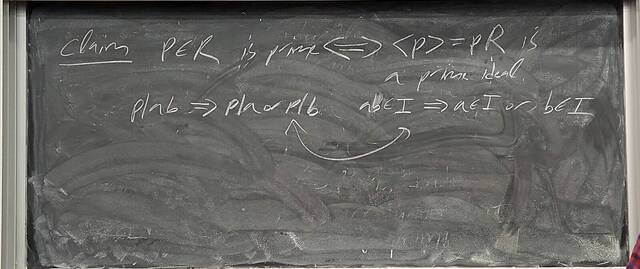 Claim p∈R is prime <=> <p> = pR is
a prime ideal.
p|ab => p|a or p|b. ab∈I => a∈I or b∈I